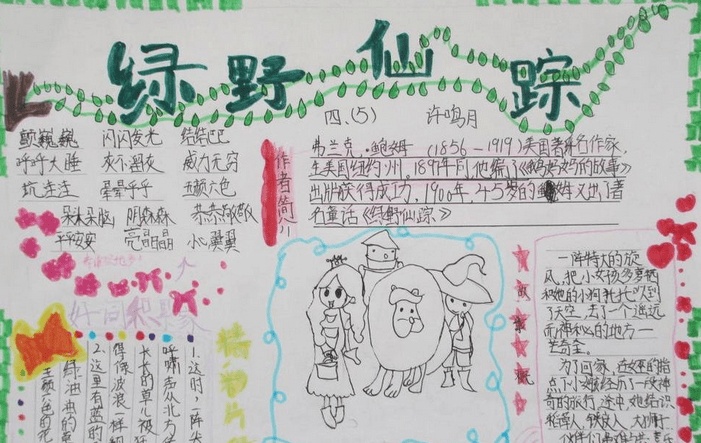 绿野仙踪
四、(5) 许鸣月
颤巍巍 闪闪发光 结结巴巴
呼呼大睡 夜不闭夜 威力无穷
坑洼洼 晕晕乎乎 五颜六色
呆头呆脑 阴森森 恭恭敬敬
平平安安 亮晶晶 小心翼翼
好词积累家
作者简介
弗兰克·鲍姆 (1856-1919)美国著名作家,
生美国纽约州,1897年间,他编了《鹅妈妈的故事》
出版获得成功,1900年,45岁的鲍姆又出了著
名童话《绿野仙踪》
故事
概
一阵特大的旋
风,把小女孩多萝茜
和她的小狗托托吹到
了天空,去了一个遥远
而神秘的地方一
芒奇金。
为了回家,在女巫的指
点下小女孩经历了一段神
奇的旅行,途中,她结识
稻草人、铁皮人、大狮子
精彩片
1.这时,一阵尖
呼啸声从北方传
长长的草儿被狂
得像波浪一样
2.这里有蓝的
绿油油的草
五颜六色的花